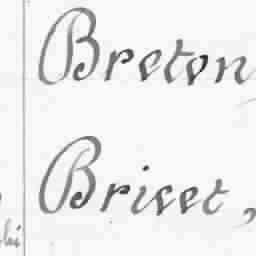 Breton,
Brisset,